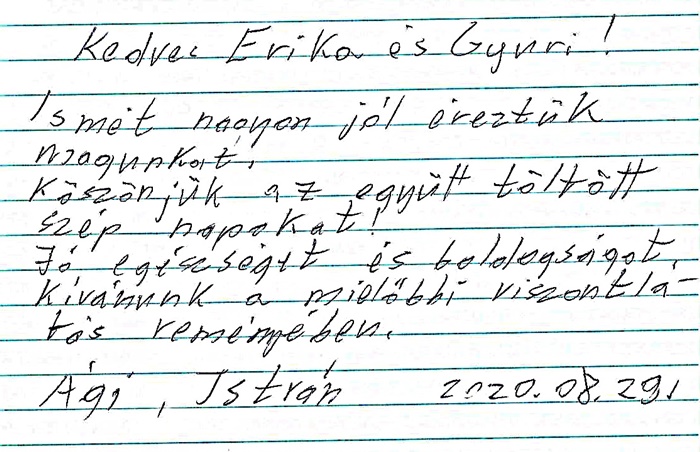 Kedves Erika és Gyuri!
Ismét nagyon jól éreztük
magunkat.
Köszönjük az együtt töltött
szép napokat!
Jó egészséget és boldogságot
kívánunk a mielőbbi viszontlá-
tás reményében.
Ági, István 2020.08.29.